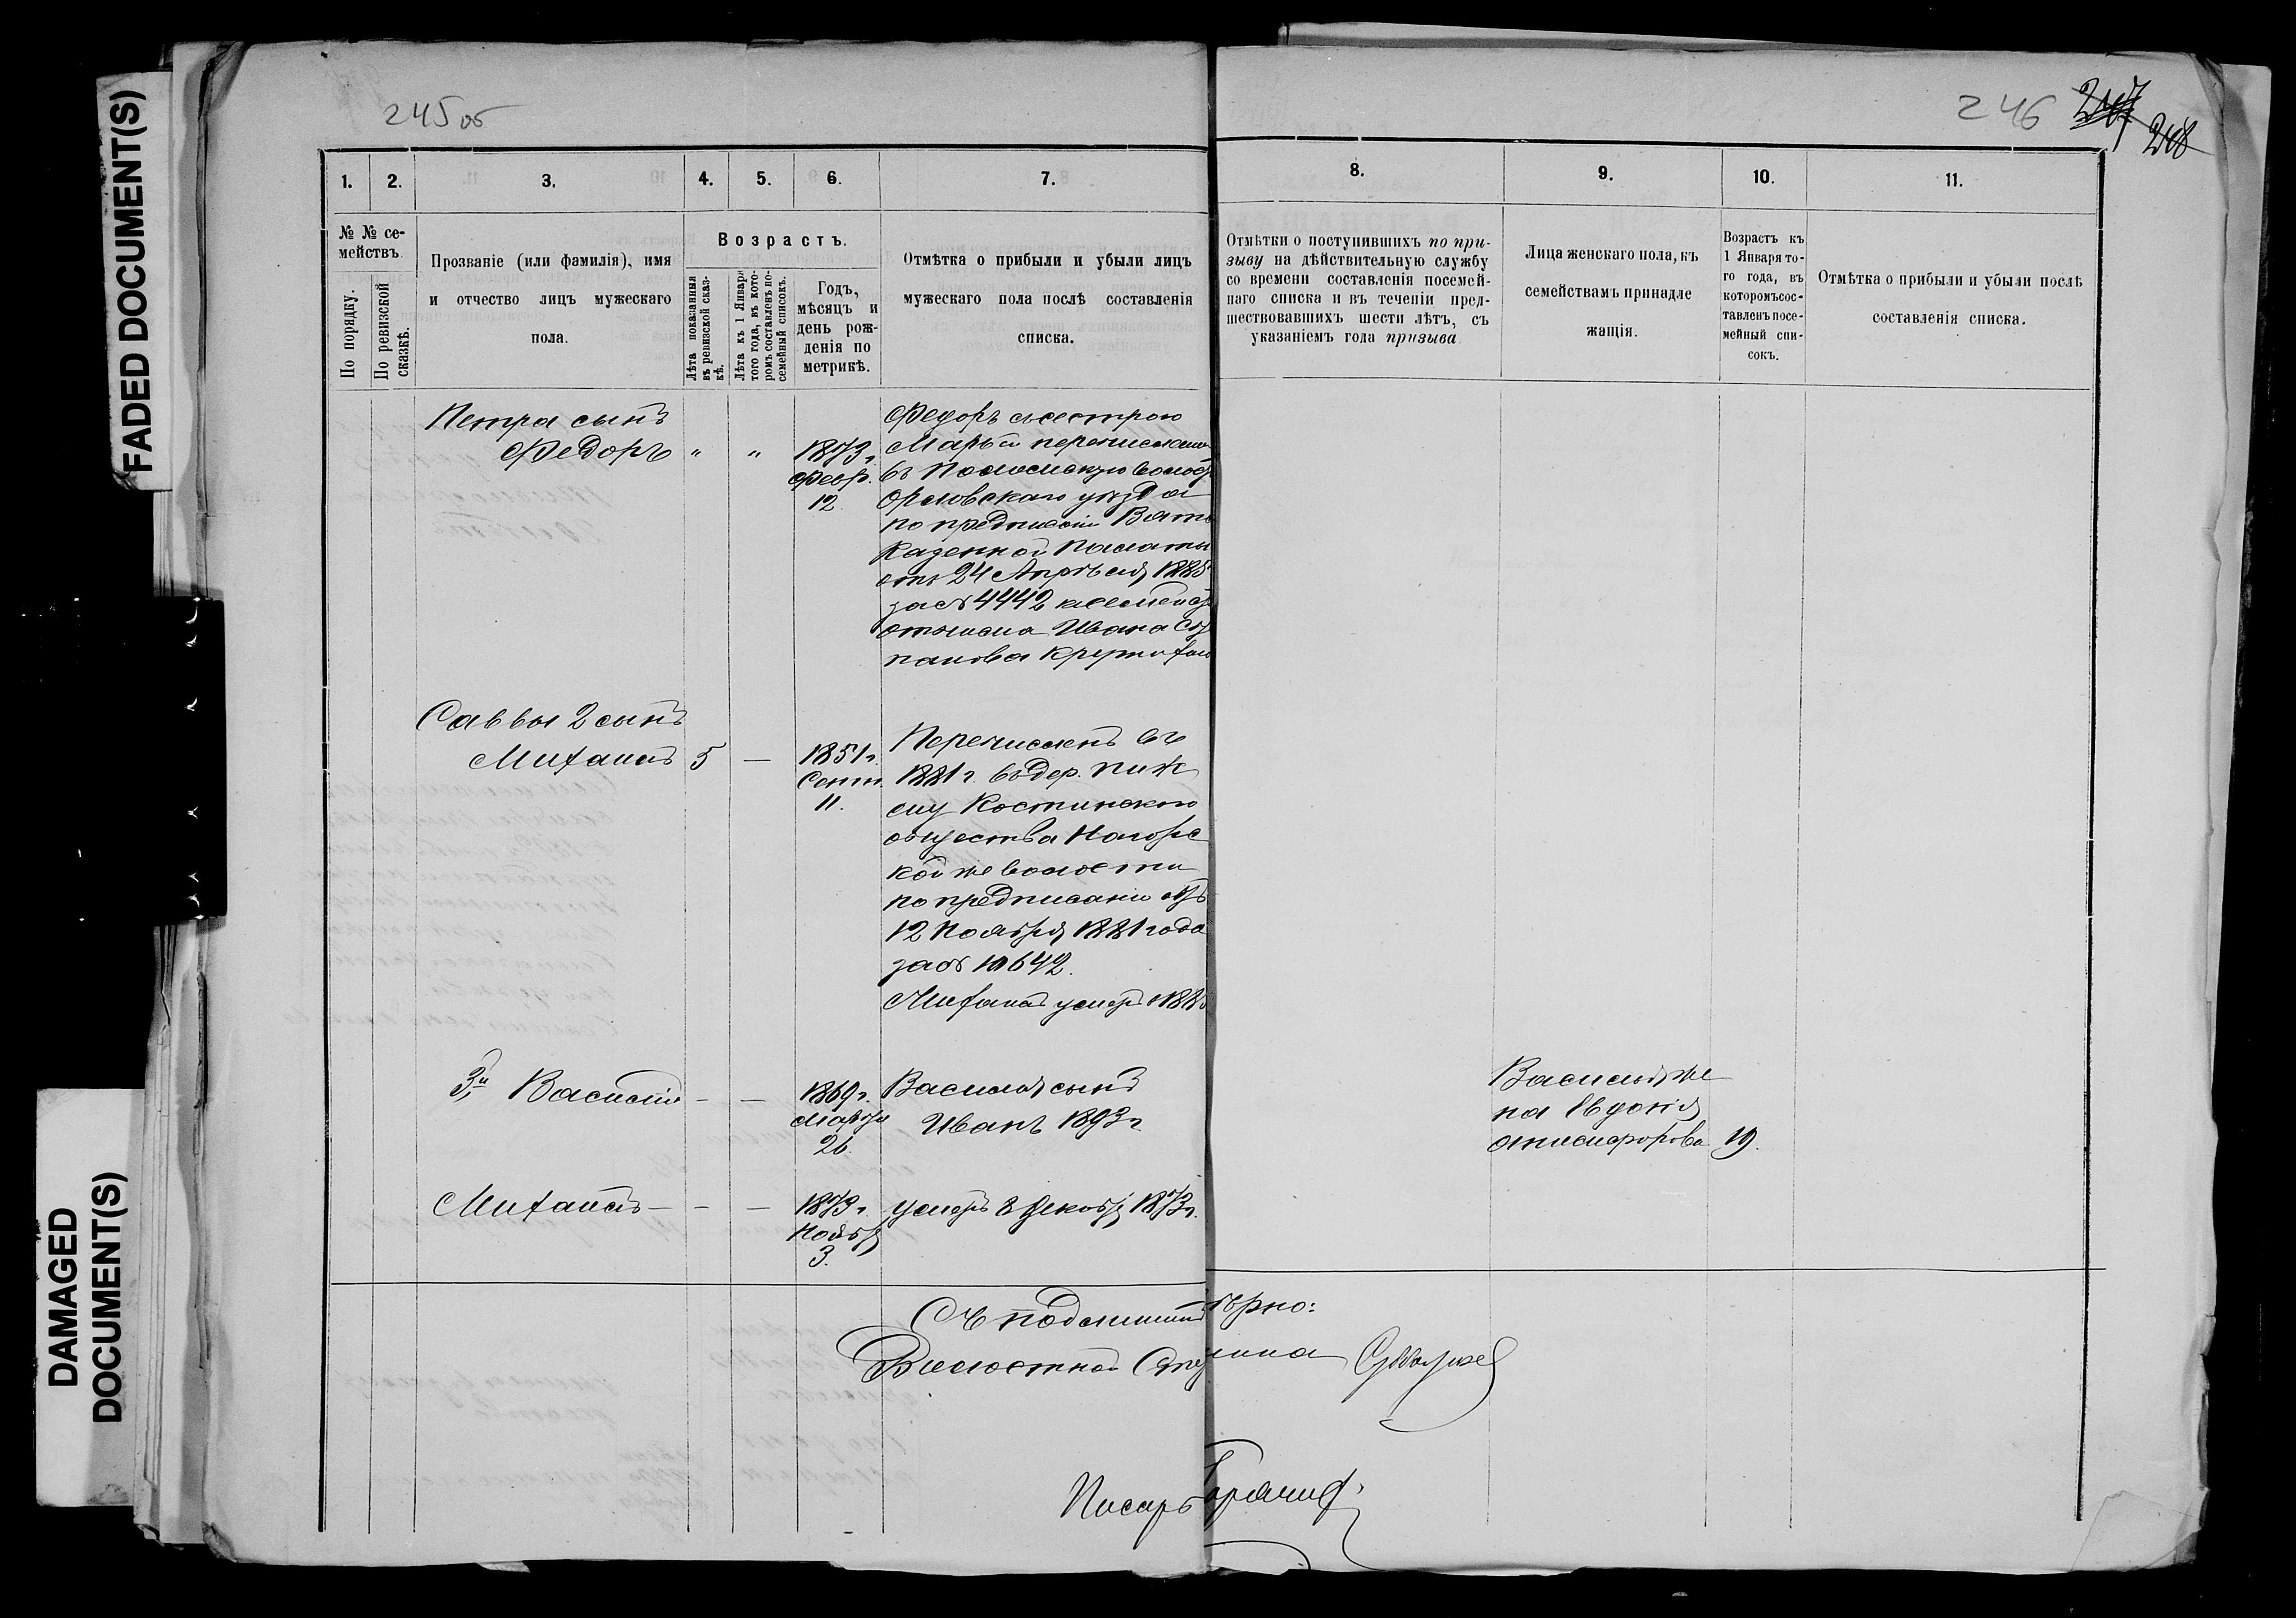 FADED DOCUMENT(S)
DAMAGED
DOCUMENT(S)
245 об
246
1.
2.
3.
4.
5.
6.
7.
8.
9.
10.
11.
№ № се-
мействъ.
По порядку.
По ревизской
сказкѣ.
Прозваніе (или фамилія), имя
и отчество лицъ мужескаго
пола.
Возрастъ.
Лѣта показанныя
въ ревизской сказ-
кѣ.
Лѣта къ 1 Января
того года, въ кото-
ромъ составленъ по-
семейный списокъ.
Годъ,
мѣсяцъ и
день рож-
денія по
метрикѣ.
Отмѣтка о прибыли и убыли лицъ
мужескаго пола послѣ составленія
списка.
Отмѣтки о поступившихъ по при-
зыву на дѣйствительную службу
со времени составленія посемей-
наго списка и въ теченіи пред-
шествовавшихъ шести лѣтъ, съ
указаніемъ года призыва
Лица женскаго пола, къ
семействамъ принадле
жащія.
Возрастъ къ
1 Января то-
го года, въ
которомъ сос-
тавленъ посе-
мейный спи-
сокъ.
Отмѣтка о прибыли и убыли послѣ
составленія списка.
Петра сынъ
Федоръ " "
1873 г.
Февр.
12
Федоръ съ сестрою
Марьей перечислены
въ волость
Орловскаго уѣзда
по предписанію Вятс
Казенной Палаты
отъ 24 Апрѣля 188
за № 4442 к семейст
отчима Ивана Сте
панова
Саввы 2 сынъ
Михаилъ 5 —
1851 г.
Сент.
11.
Перечисленъ въ
1881 г. въ дер. Пиж
му Костинскаго
общества Нагорс
кой же волости
по предписанію отъ
12 Ноября 1881 года
за № 10642.
Михаилъ умеръ 188
3й Василій - —
1869 г.
Марта
26
Василья сынъ
Иванъ 1893 г.
Василья же
на Евдокія
Анисифорова 19.
Михаилъ — - —
1873 г.
Ноябр
3.
умеръ 8 Декабр 1873 г.
Съ подлиннымъ вѣрно:
Волостной Старшина
Писарь